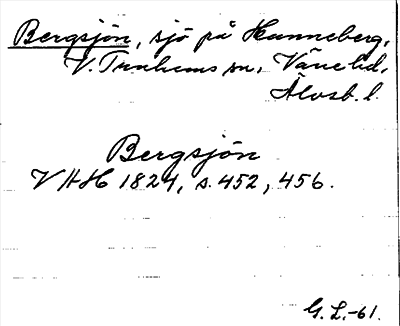 Bergsjön, sjö på Hunneberg,
V. Tunhems sn, Väne hd,
Älvsb. l.
Bergsjön
VAH 1824, s. 452, 456.
G. L. -61.